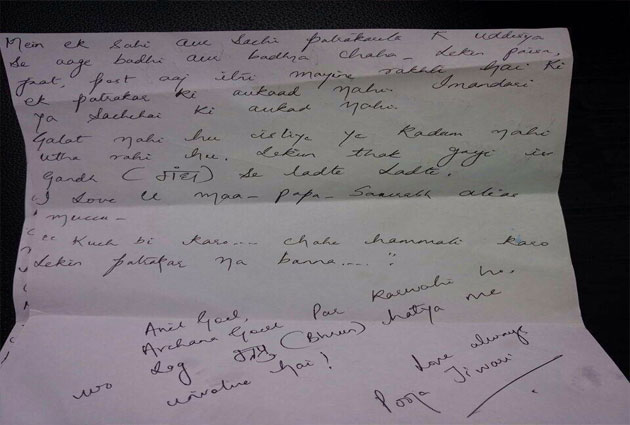 Mein ek sahi aur sachi patrakarita K uddesya
se aage badhi aur badhna chaha - Lekin paisa,
jaat, post aaj itni mayine rakhte hai Ki
ek patrakar ki aukaad nahi. Imandari
ya Sachchai Ki aukad nahi.
Galat nahi hu isliye ye Kadam nahi
utha rahi hu. Lekin thak gayi is
Gandh (गंध) se ladte ladte.
I Love U maa - papa - Saurabh alias
muccu -
"Kuch bi karo.... chahe hammali karo
Lekin patrakar na banna....."
Anil Goel,
Archana Goel Par Karwahi ho.
wo log भ्रूण (Bhrun) hatya me
involve hai!
Love always
Pooja Tiwari